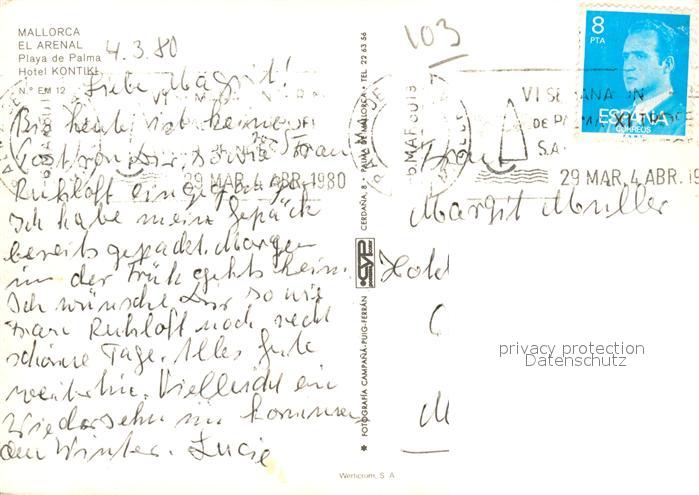 MALLORCA
EL ARENAL
Playa de Palma
Hotel KONTIKI
N.º EM 12
4.3.80
Liebe Margit!
Bis heute ist keine
Post von Dir, sowie Frau
Ruhloff eingegangen.
Ich habe mein Gepäck
bereits gepackt. Morgen
in der Früh gehts heim.
Ich wünsche Dir sowie
Frau Ruhloff noch recht
schöne Tage. Alles Gute
weiterhin. Vielleicht ein
Wiedersehn im kommen
den Winter. Lucie
29 MAR. 4 ABR. 1980
✱ FOTOGRAFIA CAMPAÑA-PUIG-FERRÁN
CYP
CERDAÑA, 8 - PALMA DE MALLORCA - TEL. 22 63 56
103
8
PTA
ESPAÑA
CORREOS
VI SEMANA
DE PALMA
29 MAR. 4 ABR. 19
Frau
Margit Müller
Hotel
privacy protection
Datenschutz
Werticrom, S. A.